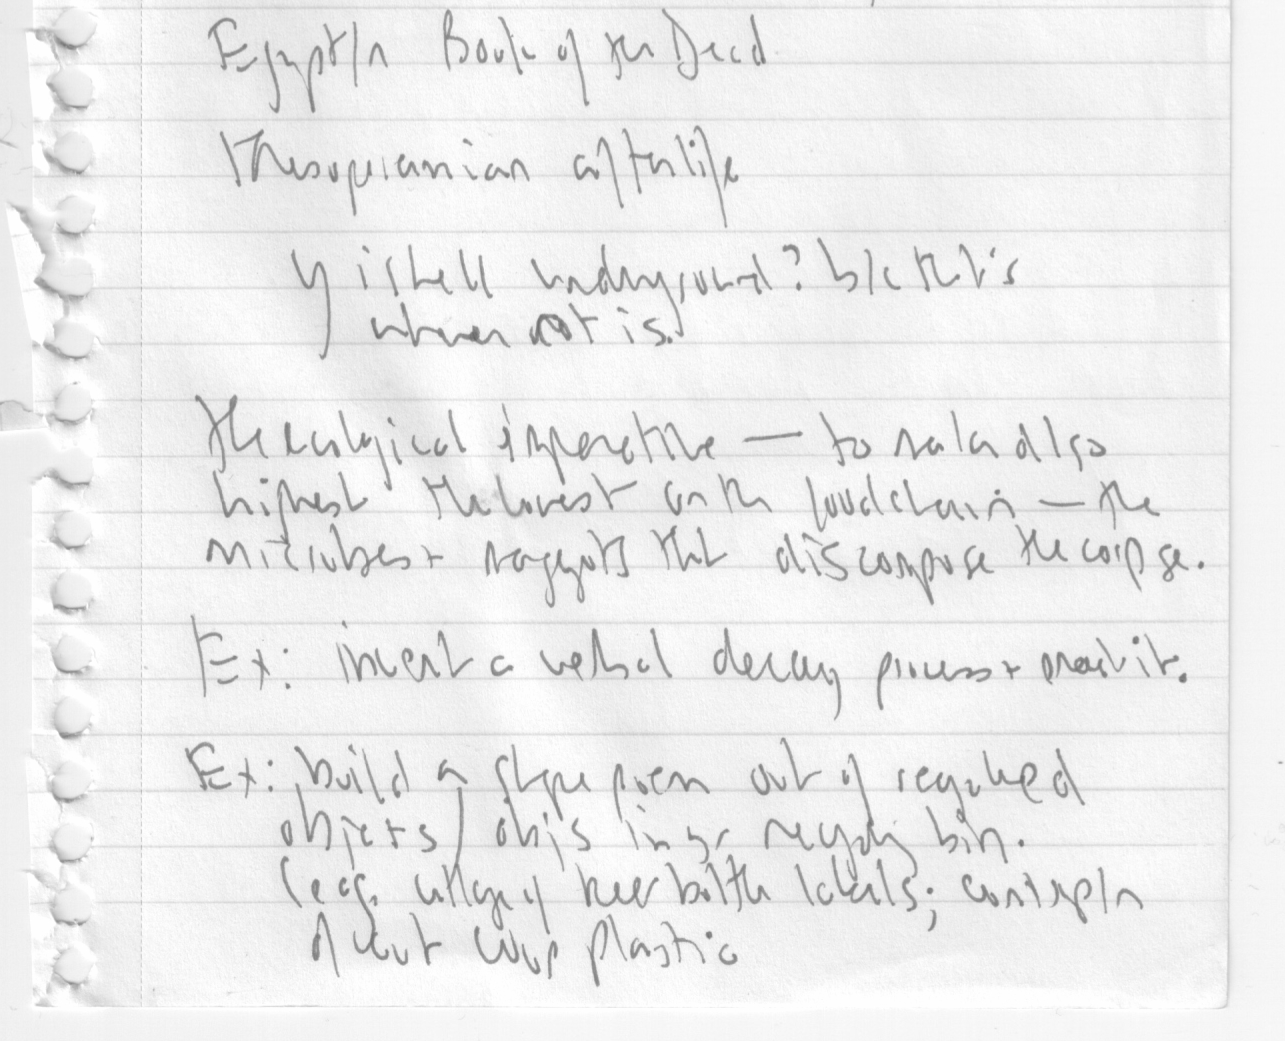 Egypt/n Book of the Dead
Mesopotamian afterlife
y is hell underground? b/c that's
where rot is.
The ecological imperative — to
highest the lowest on the foodchain — the
microbes + maggots that discompose the corpse.
Ex: invent a verbal decay process + enact it.
Ex: build a shape poem out of recycled
objects / objs in yr recycling bin.
(e.g. collage of beer bottle labels;
of plastic